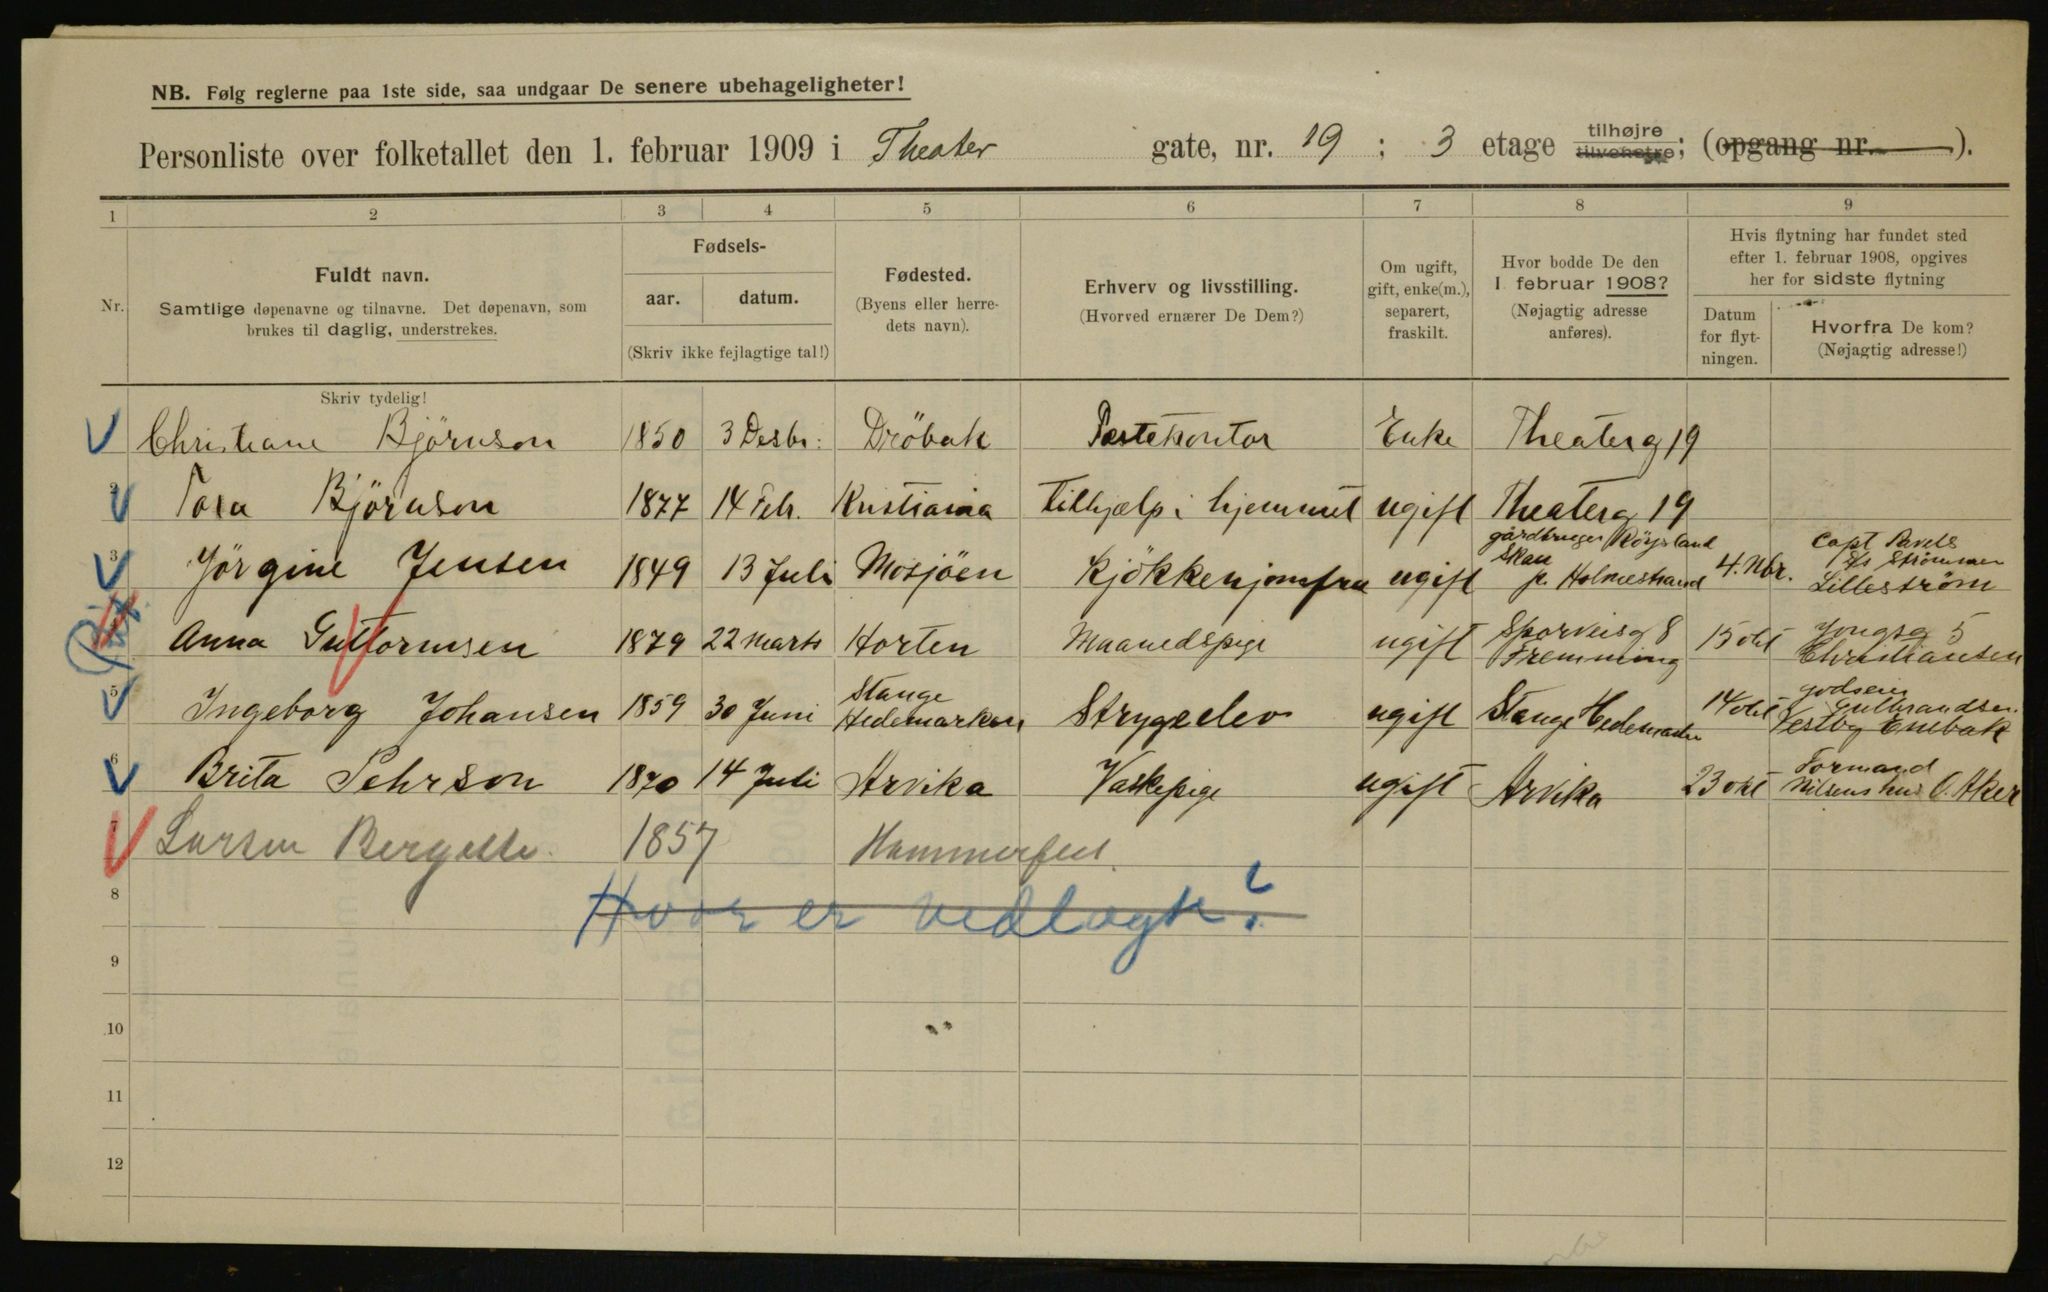 NB. Følg reglerne paa 1ste side, saa undgaar De senere ubehageligheter!
Personliste over folketallet den 1. februar 1909 i Theater gate, nr. 19 ; 3 etage tilhøjre tilvenstre; (opgang nr. ).
1 2 3 4 5 6 7 8 9
Nr.
Fuldt navn.
Samtlige døpenavne og tilnavne. Det døpenavn, som
brukes til daglig, understrekes.
Fødsels-
aar. datum.
(Skriv ikke fejlagtige tal!)
Fødested.
(Byens eller herre-
dets navn).
Erhverv og livsstilling.
(Hvorved ernærer De Dem?)
Om ugift,
gift, enke(m.),
separert,
fraskilt.
Hvor bodde De den
1 februar 1908?
(Nøjagtig adresse
anføres).
Hvis flytning har fundet sted
efter 1. februar 1908, opgives
her for sidste flytning
Datum
for flyt-
ningen.
Hvorfra De kom?
(Nøjagtig adresse!)
Skriv tydelig!
Christiane Björnson 1850 3 Desbr. Dröbak Enke Theaterg 19
2 Tora Björnson 1877 14 Febr. Kristiania tilhjælp i hjemmet ugift Theaterg 19
3 Jörgine Jensen 1849 13 Juli Mosjöen Kjökkenjomfru ugift gårdbruger Röysland Skau p. Holmestrand 4. Nbr. Capt Strömmen Lilleström
4 Anna Guttormsen 1879 22 Marts Horten Maanedspige ugift Sporveisg 8 Fremming 15 okt Yongsg 5 Christiansen
5 Ingeborg Johansen 1859 30 Juni Stange Hedemarken Strygeelev ugift Stange Hedemarken 14 okt godseier Gulbrandsen Vestby Enebak
6 Brita Pehrson 1870 14 Juli Arvika Vaskepige ugift Arvika 23 okt Formand Nilsens hus Ø. Aker
7 Larsen Bergette 1857 Hammerfest
8 Hvor er vedlagte?
9
10
11
12